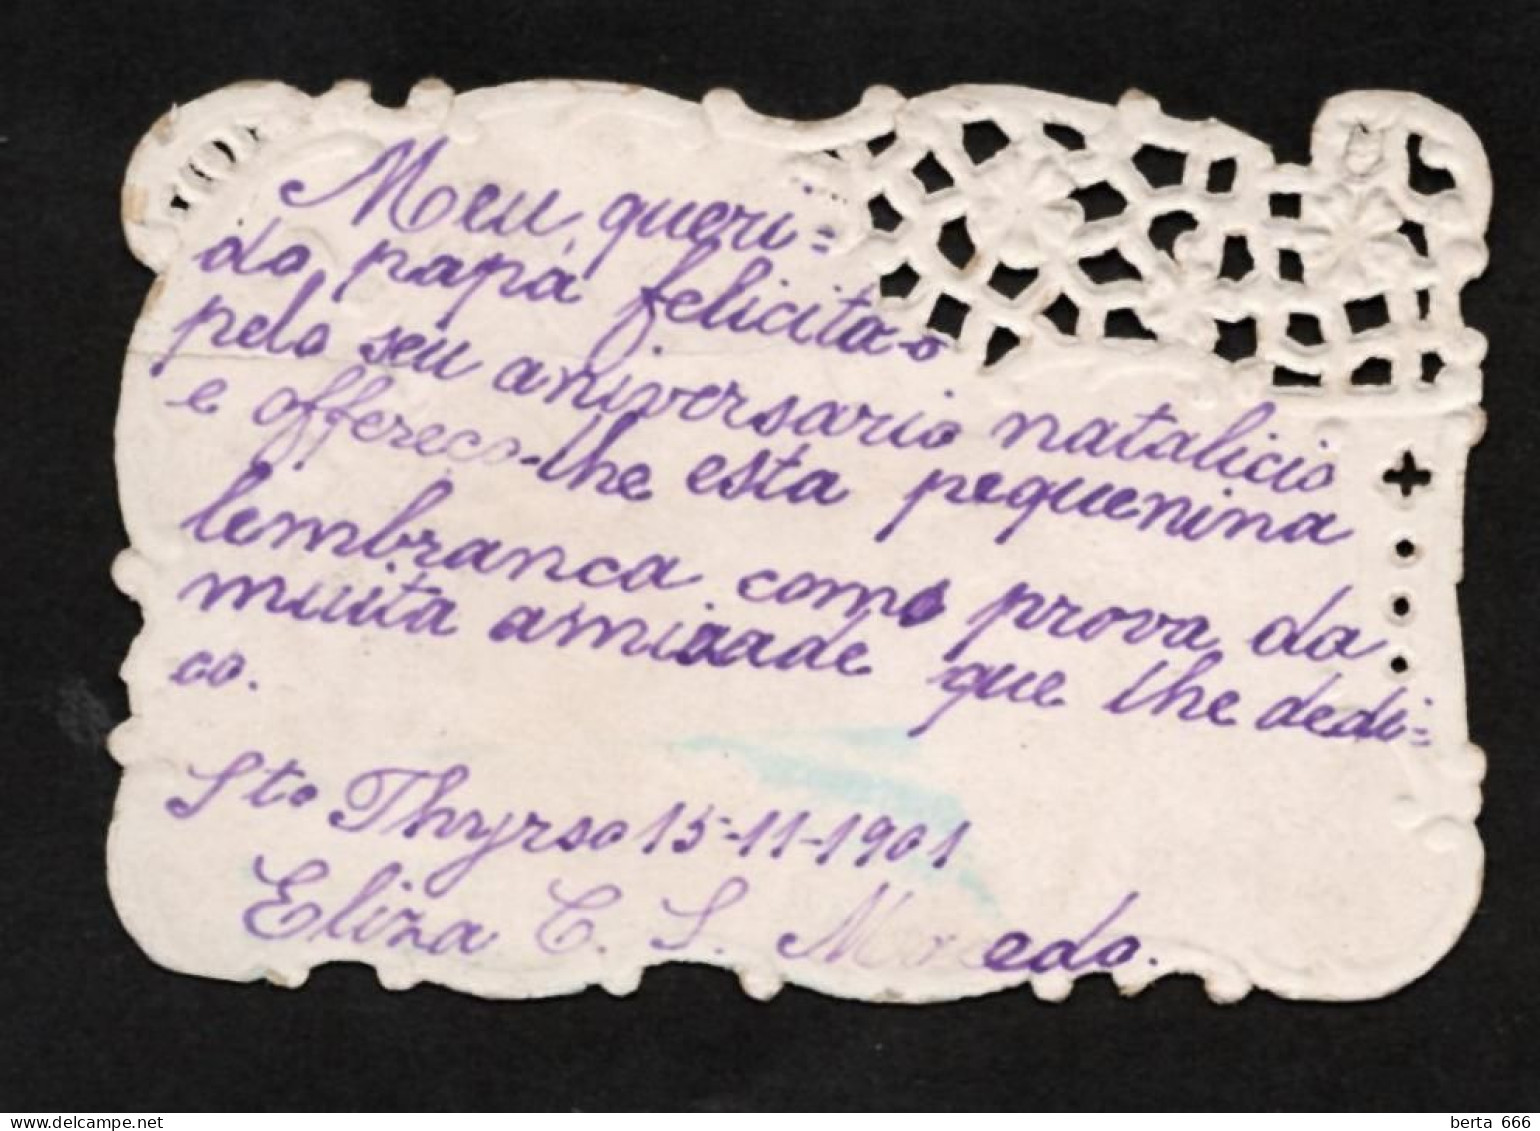 Meu queri=
do papá felicita-o
pelo seu aniversario natalicio
e offereco-lhe esta pequenina
lembranca como prova da
muita amizade que lhe dedi=
co.
Sto Thyrso 15-11-1901
Eliza C. S.
www.delcampe.net
berta 666